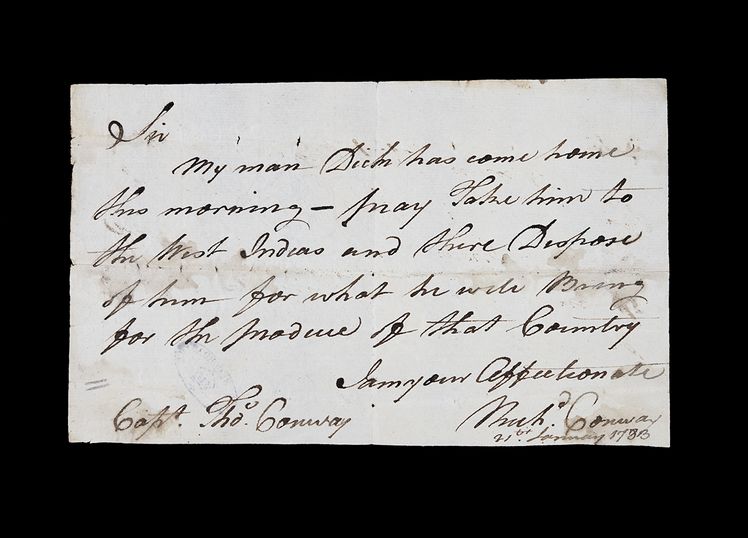 Sir
My man Dick has come home
this morning – pray Take him to
the West Indias and there Dispose
of him for what he will Bring
for the produce of that Country
I am your Affectionate
Capt. Tho.s Conway
Rich.d Conway
21st January 1783